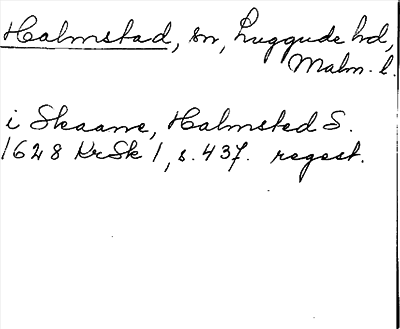 Halmstad, sn, Luggude hd,
Malm. l.
i Skaane, Halmsted S.
1628 KrSk 1, s. 437. regest.